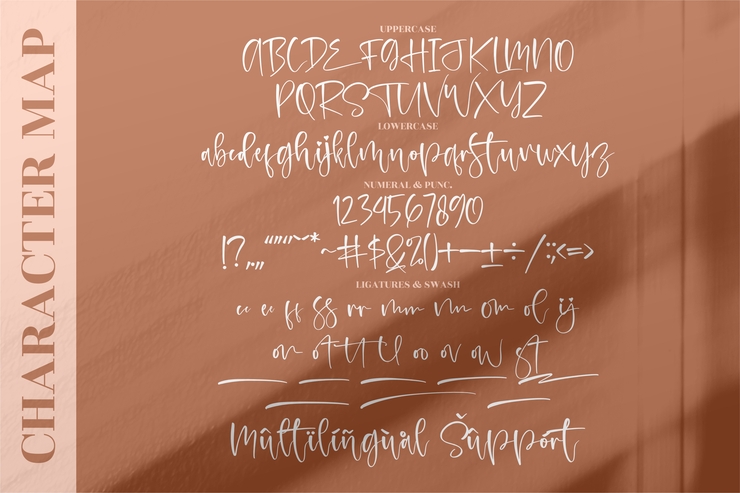 CHARACTER MAP
UPPERCASE
ABCDE FGHIJKLMNO
PQRSTUVWXYZ
LOWERCASE
abcdefghijklmnopqrstuvwxyz
NUMERAL & PUNC.
1234567890
!?.,„“”‘’"~-* ~#$&%()+—±÷/:;<=>
LIGATURES & SWASH
ee ff ss rr mm nn om ol ij
on ot tt tl oo ov ow st
Mûltïlíñgùål Šüppórt